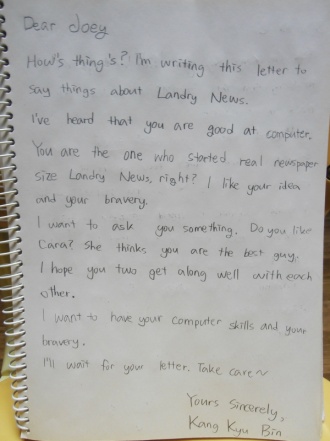 Dear Joey
How's thing's? I'm writing this letter to
say things about Landry News.
I've heard that you are good at computer.
You are the one who started real newspaper
size Landry News, right? I like your idea
and your bravery.
I want to ask you something. Do you like
Cara? She thinks you are the best guy.
I hope you two get along well with each
other.
I want to have your computer skills and your
bravery.
I'll wait for your letter. Take care~
Yours Sincerely,
Kang Kyu Bin